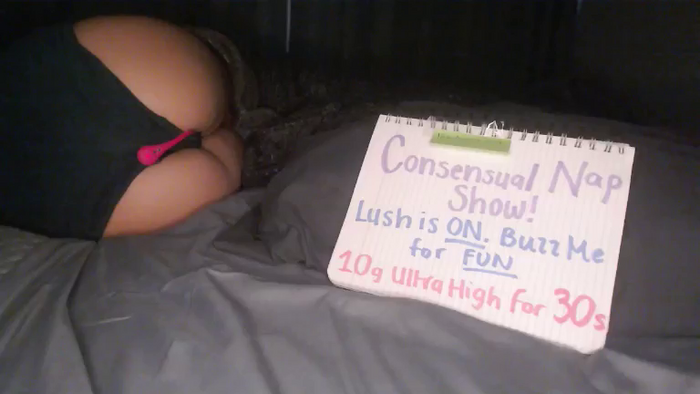 Consensual Nap
Show!
Lush is ON. Buzz Me
for FUN
10g Ultra High For 30s